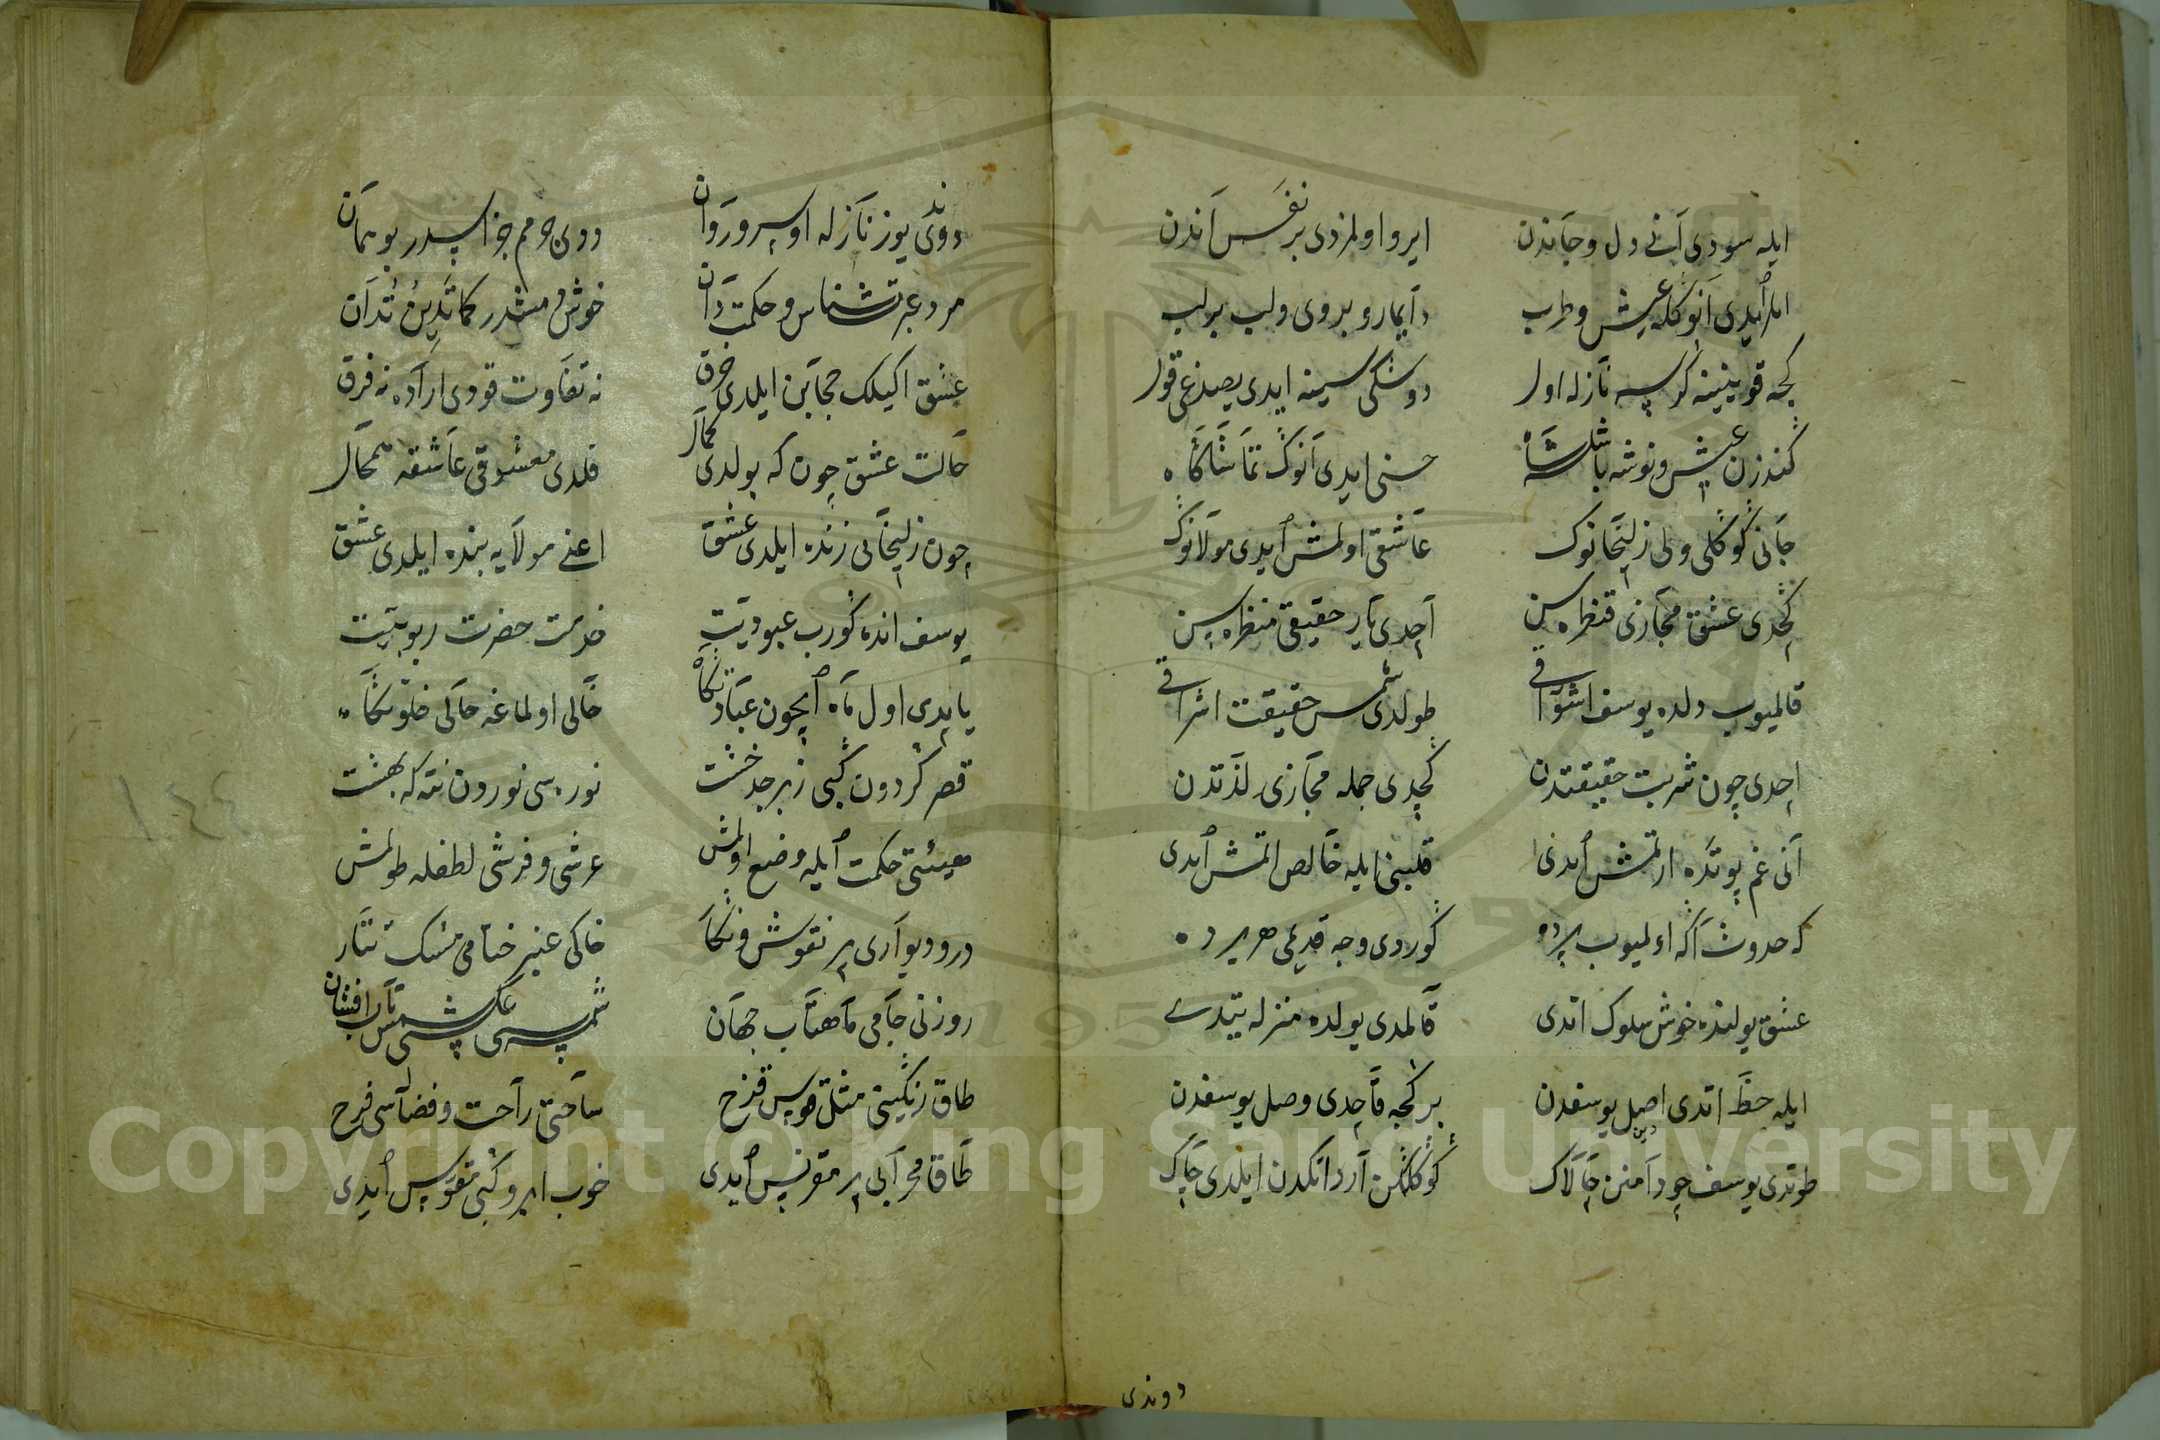 ایله سودی آنی دل و جاندن ایرو اولمزدی بر نفس آندن
ایدی آنوکله عیش و طرب دایما رو بروی و لب بر لب
کیجه قوینینه کرسه نازله اول دوشکی سینه ایدی یصدغی قول
کندزن عیش و نوشه باشلسه شاه حسنی ایدی آنوڭ تماشاکاه
جانی کوڭلی ولی زلیخانوڭ عاشقی اولمش ایدی مولانوڭ
کچدی عشق مجازی قنطره سین آچدی یار حقیقی منظره سین
قالمیوب دلده یوسف اشواقی طولدی شمس حقیقت اشراقی
ایچدی چون شربت حقیقتدن کچدی جمله مجازی لذتدن
آنی غم پوتده ارتمش ایدی قلبنی ایله خالص اتمش ایدی
که حدوث آڭه اولمیوب پرده کوردی وجه قدیمی هر یرده
عشق یولنده خوش سلوك اتدی قالمدی یولده منزله یتدی
ایله حظ اتدی اصل یوسفدن بر کیجه قاچدی وصل یوسفدن
طوتدی یوسف چو دامنن چالاك کوڭلکن آرد اتکدن ایلدی چاك
دوندی
دوندی یوز نازله او سرو روان ددی جرمم جزاسیدر بو همان
مرد عبرت شناس و حکمت دان خوش دیمشدر کما تدین تدان
عشق اکیلك حجابن ایلدی خرق نه تفاوت قودی آراده نه فرق
حالت عشق چون که بولدی کمال قلدی معشوقی عاشقه همحال
چون زلیخایی زنده ایلدی عشق اعنی مولایه بنده ایلدی عشق
یوسف انده کورب عبودیت خدمت حضرت ربوبیت
یاپدی اول ماه ایچون عبادتکاه خالی اولماغه حالی خلوتکاه
قصر کردون کبی زبرجد خشت نوره سی نوردن نته که بهشت
هیئتی حکمت ایله وضع اولمش عرشی و فرشی لطفله طولمش
در و دیواری پر نقوش و نکار خاکی عنبر ختامی مشك تتار
روزنی جامی ماهتاب جهان شمسه سی عکس شمس تاب افشان
طاق رنکینی مثل قوس قزح ساحتی راحت و فضاسی فرح
طاق محرابی پر مقرنس ایدی خوب ابرو کبی مقوس ایدی